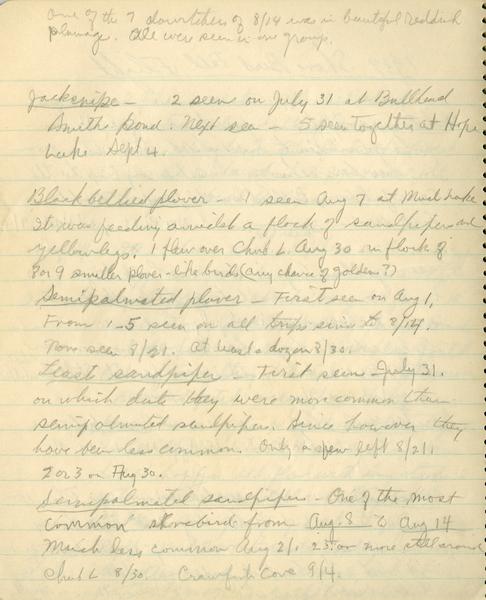 One of the 7 dowitchers of 8/14 was in beautiful reddish
plumage. All were seen in one group.
Jacksnipe - 2 seen on July 31 at Bullhead
Smiths pond. Next seen - 5 seen together at Hope
Lake Sept 4.
Black bellied plover - 1 seen Aug 7 at Mud Lake
It was feeding amidst a flock of sandpipers and
yellowlegs. 1 flew over Chub L. Aug 30 in flock of
8 or 9 smaller plover-like birds (any chance of golden?)
Semipalmated plover - First seen on Aug 1,
From 1-5 seen on all trips since to 8/14.
None seen 8/21. At least a dozen 8/30.
Least sandpiper - First seen July 31.
on which date they were more common than
semipalmated sandpipers. Since however they
have been less common. Only a few left 8/21,
2 or 3 on Aug 30.
Semipalmated sandpipers - One of the most
common shorebird from Aug 8 to Aug 14
Much less common Aug 21. 25 or more still around
Chub L 8/30. Crawfish Cove 9/4.